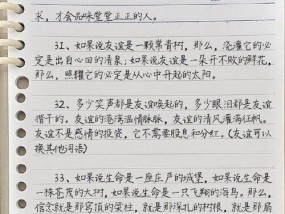 求，才会品味堂堂正正的人。
31、如果说友谊是一颗常青树，那么，浇灌它的必
定是出自心田的清泉；如果说友谊是一朵开不败的鲜花，
那么，照耀它的必定是从心中升起的太阳。
32、多少笑声都是友谊唤起的，多少眼泪都是友谊
揩干的。友谊的港湾温情脉脉，友谊的清风灌满征帆。
友谊不是感情的投资，它不需要股息和分红。（友谊可以
换其他词语）
33、如果说生命是一座庄严的城堡，如果说生命是
一株苍茂的大树，如果说生命是一只飞翔的海鸟。那么，
信念就是那穹顶的梁柱，就是那深扎的树根，就是那扇